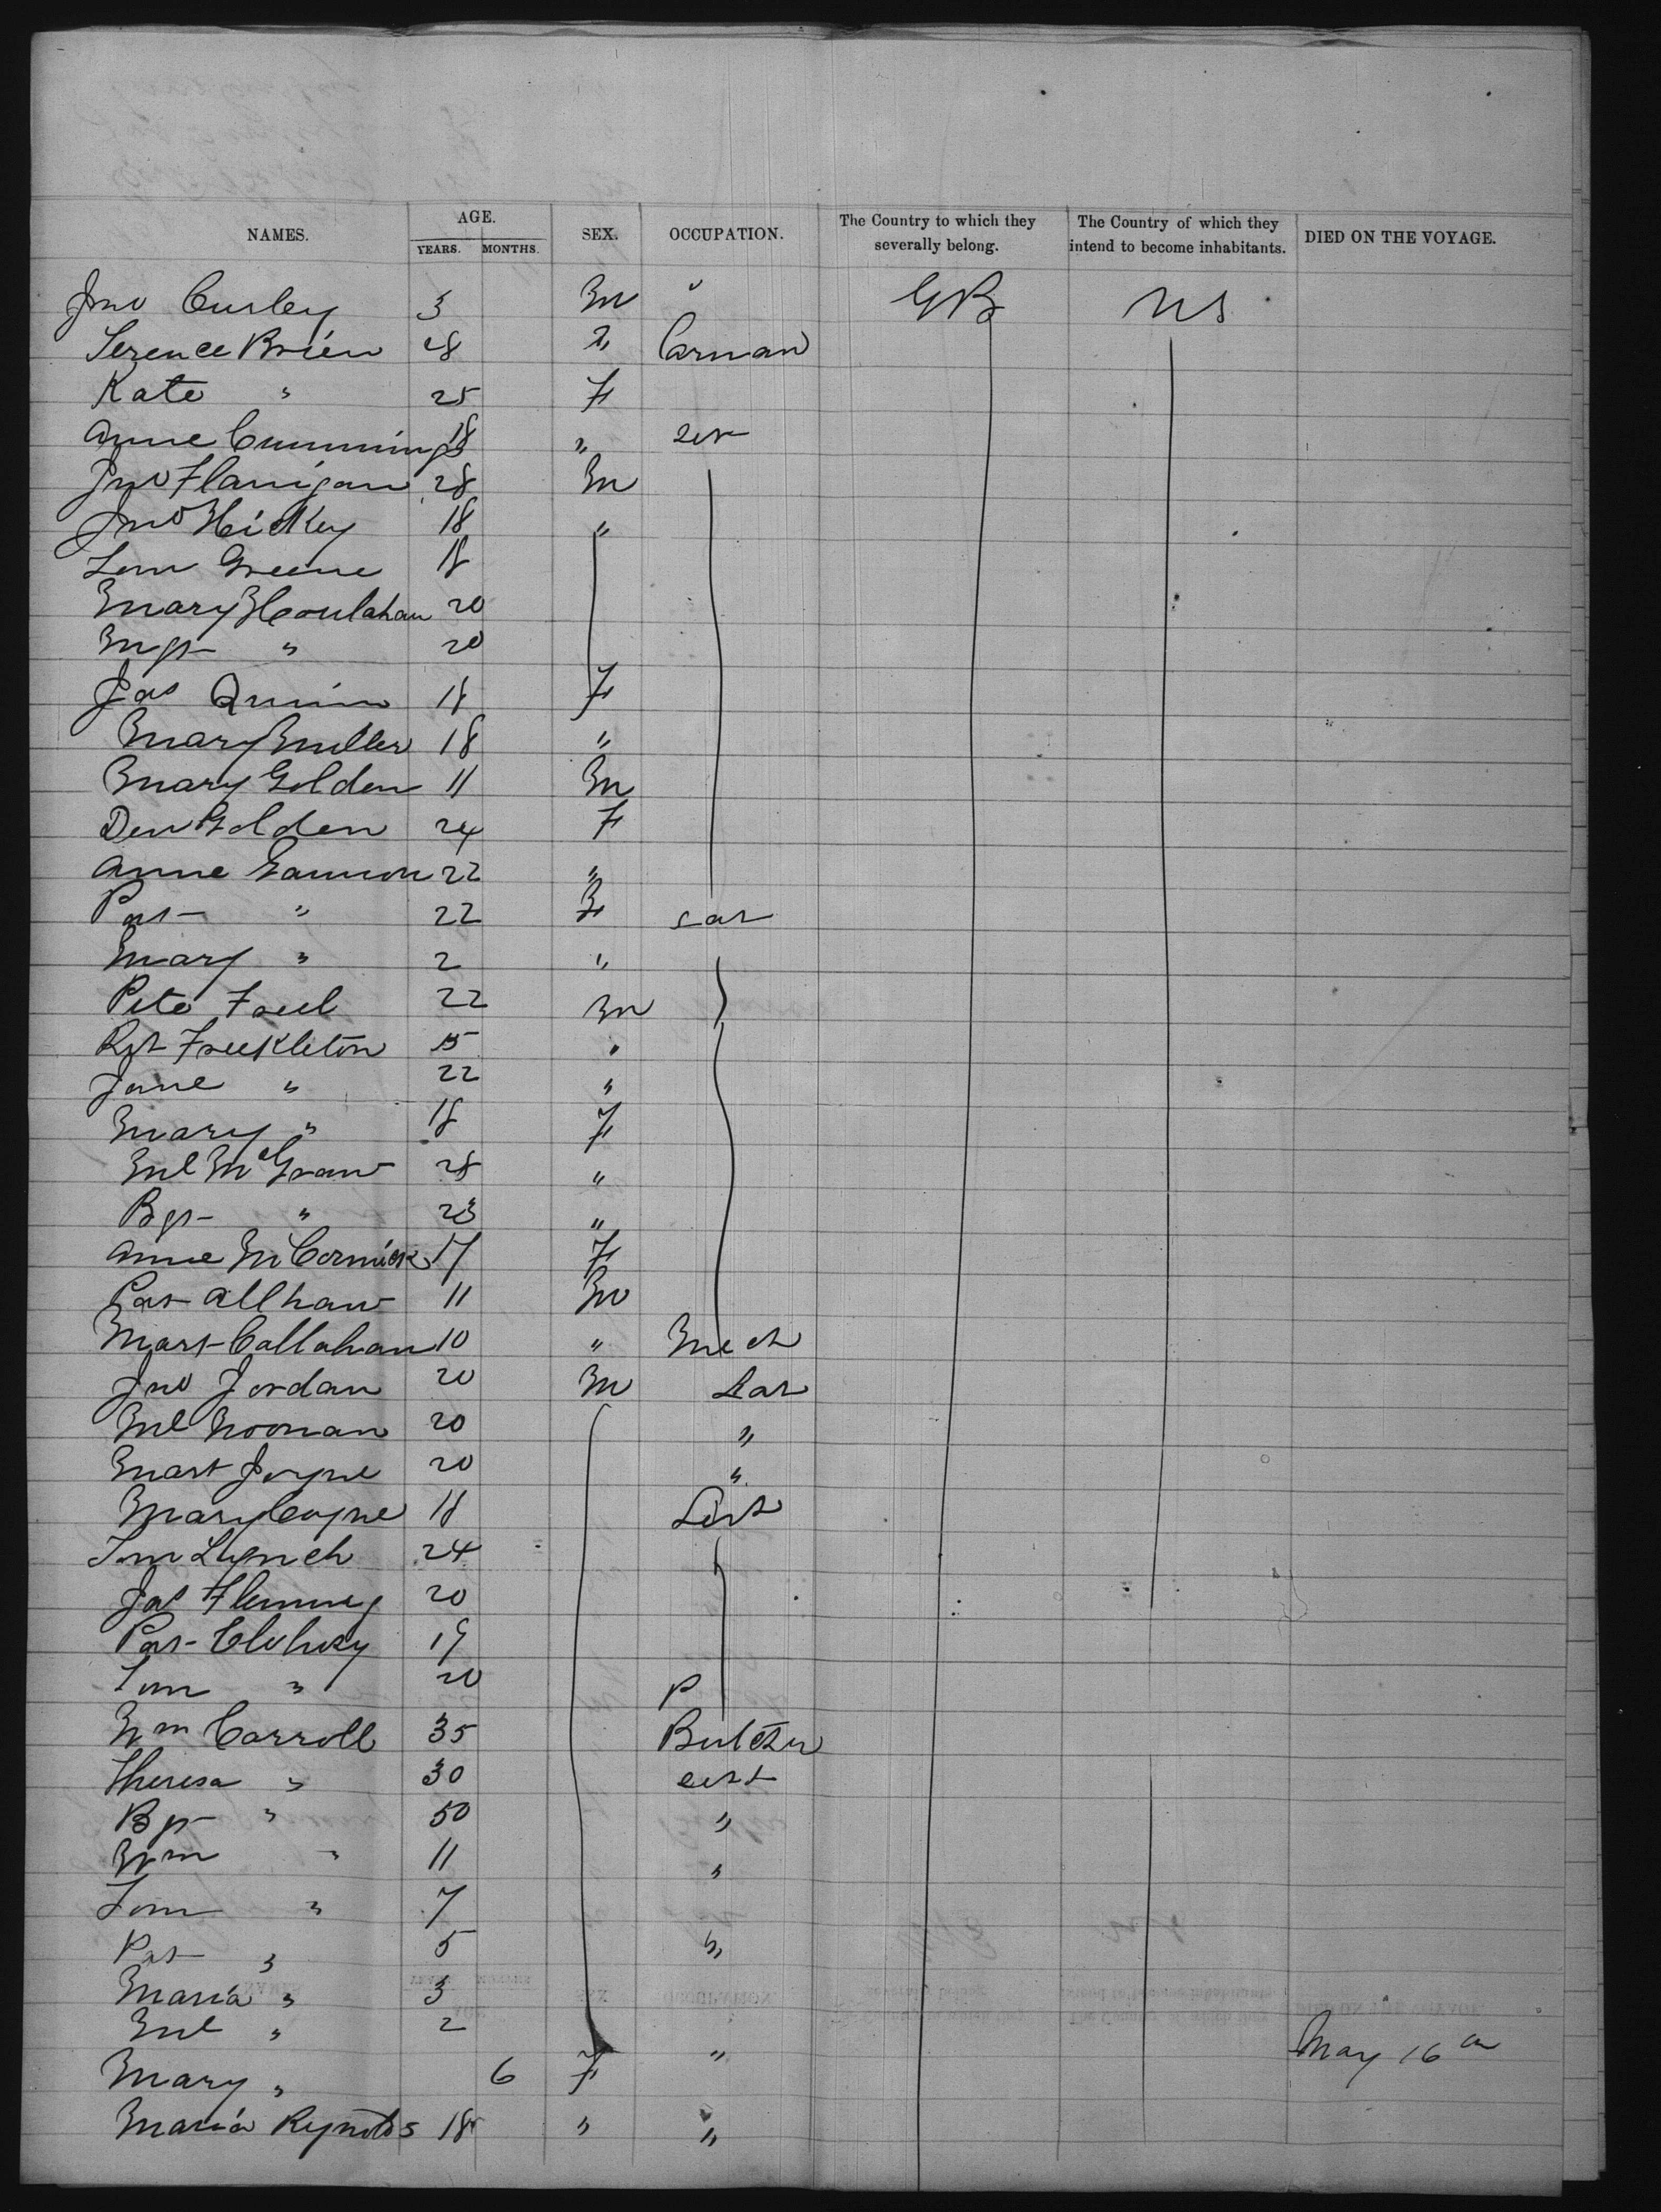 NAMES. AGE. YEARS. MONTHS. SEX. OCCUPATION. The Country to which they severally belong. The Country of which they intend to become inhabitants. DIED ON THE VOYAGE.
Jno Curley 3 M " GB US
Terence Brien 28 " Carman
Kate " 25 F
Anne Cummings 18 " ser
Jno Flanigan 28 M
Jno Hickey 18 "
Tom Greene 18
Mary Houlahan 20
Mgt " 20
Jas Quinn 18 F
Mary Miller 18 "
Mary Golden 11 M
Den Golden 24 F
Anne Gannon 22 "
Pat " 22 F Lab
Mary " 2 "
Pete Freel 22 M
Rbt Freckleton 15 "
Jane " 22 "
Mary " 18 F
Ml McGraw 28 "
Bgt " 23 "
Anne McCormick 17 F
Pat 11 M
Mart Callahan 10 " Mech
Jno Jordan 20 M Lab
Ml Noonan 20 "
Mart Joyne 20 "
Mary Coyne 18
Tim Lynch 24
Jas Fleming 20
Pat Clohesy 19
Tom " 20 P
Wm Carroll 35 Butcher
Theresa " 30
Bgt " 50 "
Wm " 11 "
Tom " 7
Pat " 5 "
Maria " 3
Ml " 2
Mary " 6 F " May 16th
Maria Rynolds 18 " "